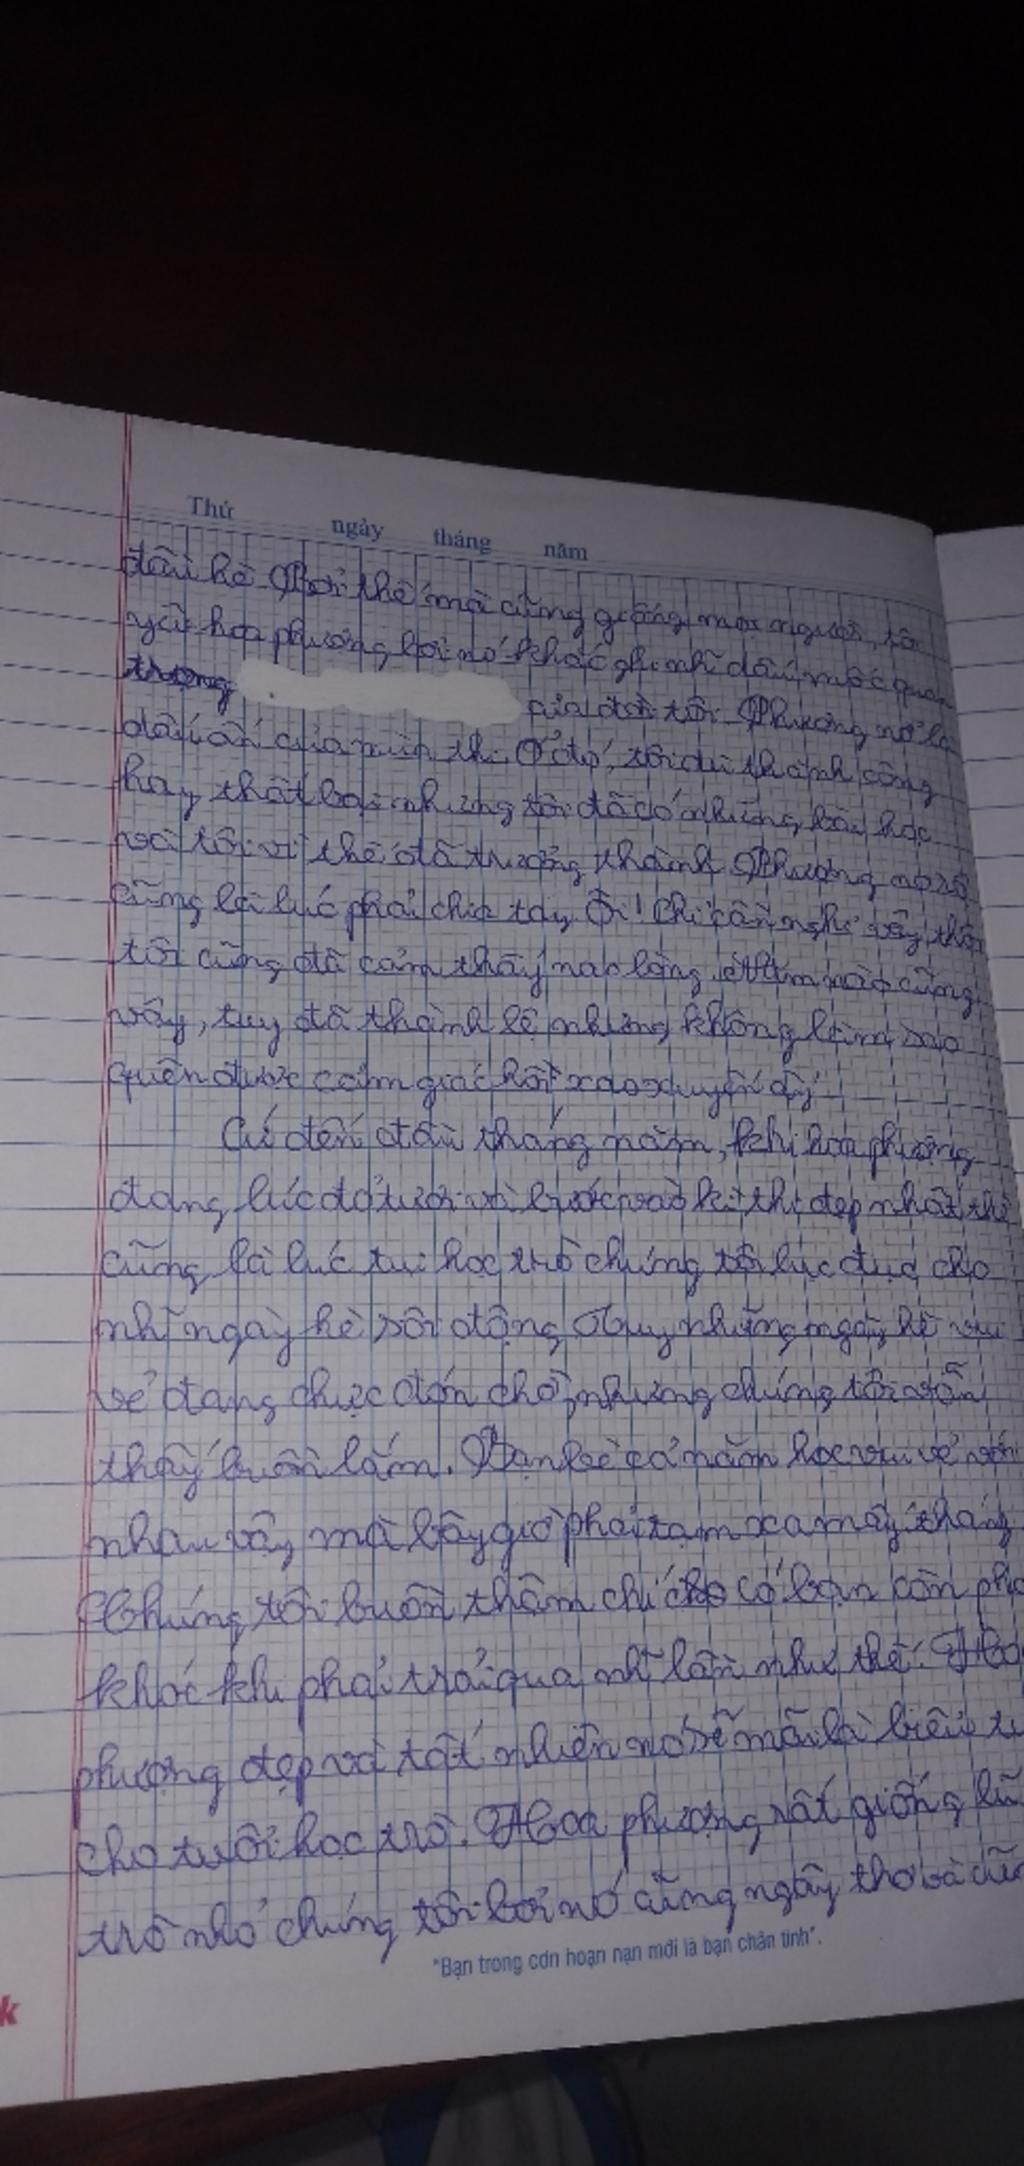 Thứ ngày tháng năm
đầu hè. Bởi thế mà cũng giống mọi người, tôi
yêu hoa phượng bởi nó khắc ghi nhĩ dấu mốc quan
trọng của đời tôi. Phượng nở là
dấu ấn của mùa thi. Ở đó, tôi dù thành công
hay thất bại nhưng tôi đã có những bài học
và tôi vì thế đã trưởng thành. Phượng nở rồ
cũng là lúc phải chia tay. Ôi! Chỉ cần nghĩ vậy thôi
tôi cũng đã cảm thấy nao lòng. Năm nào cũng
vậy, tuy đã thành lệ nhưng không làm sao
quên được cảm giác hồi xao xuyến ấy
Cứ đến đầu tháng năm, khi hoa phượng
đang lúc đỏ tươi và bước vào kì thi đẹp nhất thì
cũng là lúc tụi học trò chúng tôi lục đục cho
nhĩ ngày hè sôi động. Tuy những ngày hè vui
vẻ đang chực đón chờ, nhưng chúng tôi vẫn
thấy buồn lắm. Bạn bè cả năm học vui vẻ với
nhau vậy mà bây giờ phải tạm xa mấy tháng
Chúng tôi buồn thậm chí có bạn còn phả
khóc khi phải trải qua nhĩ lần như thế. Hoa
phượng đẹp và tất nhiên nó sẽ mãi là biểu tư
cho tuổi học trò. Hoa phượng rất giống lũ
trò nhỏ chúng tôi bởi nó cũng ngây thơ và cũn
"Bạn trong cơn hoạn nạn mới là bạn chân tình".
k